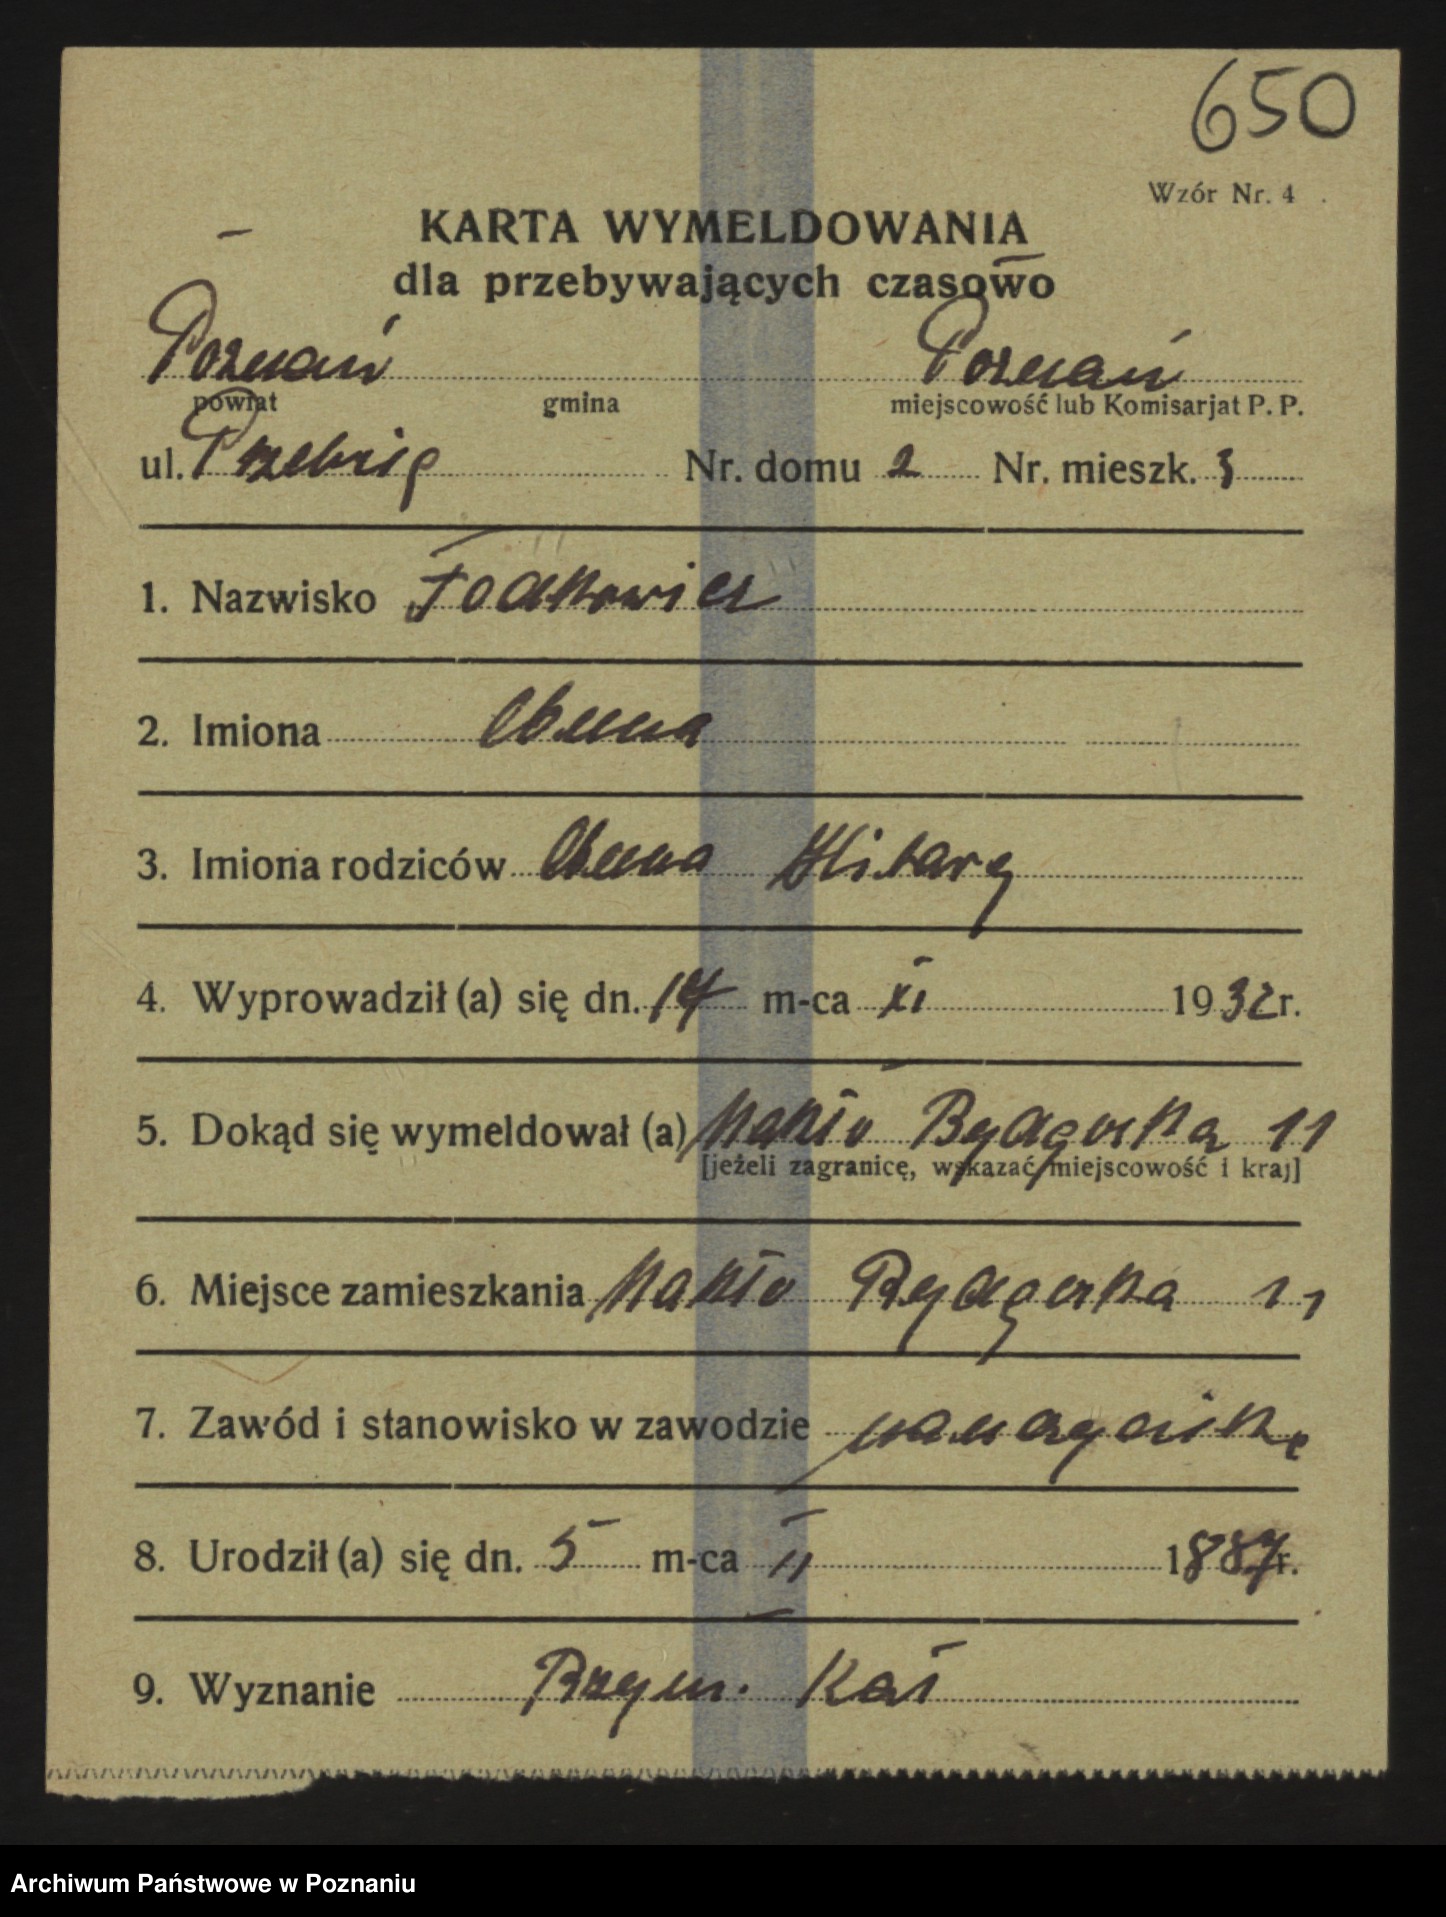 650
Wzór Nr. 4
KARTA WYMELDOWANIA
dla przebywających czasowo
Poznań Poznań
powiat gmina miejscowość lub Komisarjat P. P.
ul. Nr. domu 2 Nr. mieszk. 3
1. Nazwisko
2. Imiona Anna
3. Imiona rodziców Anna
4. Wyprowadził (a) się dn. 14 m-ca XI 1932 r.
5. Dokąd się wymeldował (a) Nakło Bydgoska 11
[jeżeli zagranicę, wskazać miejscowość i kraj]
6. Miejsce zamieszkania Nakło Bydgoska 11
7. Zawód i stanowisko w zawodzie
8. Urodził (a) się dn. 5 m-ca II 1887 r.
9. Wyznanie Rzym. Kat
Archiwum Państwowe w Poznaniu